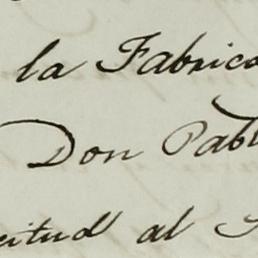 la Fabrica
Don Pabl
citud al